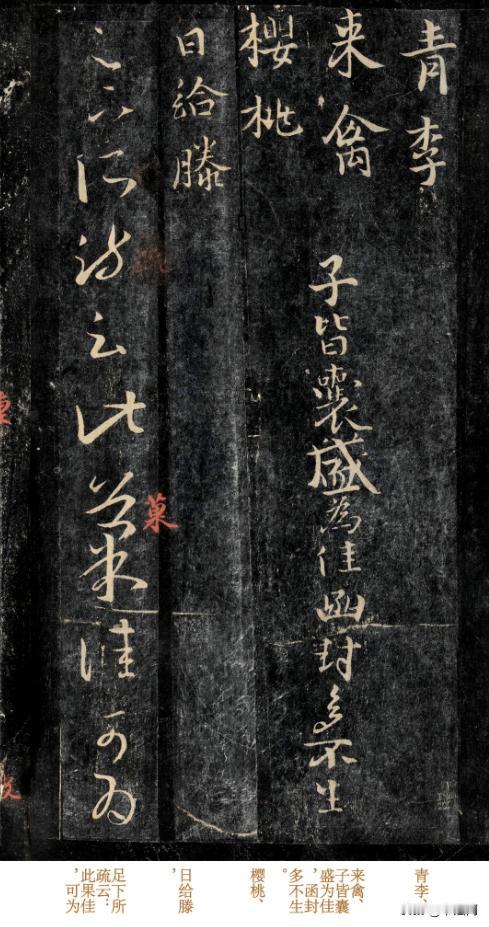 青李
来禽 子皆囊盛為佳函封多不生
櫻桃
日給滕
足下所疏云此菓佳可為
菓
青李、
来禽、
子皆囊
盛为佳
，函封
多不生
。
樱桃、
日给滕
，
足下所
疏云：
此果佳
，可为